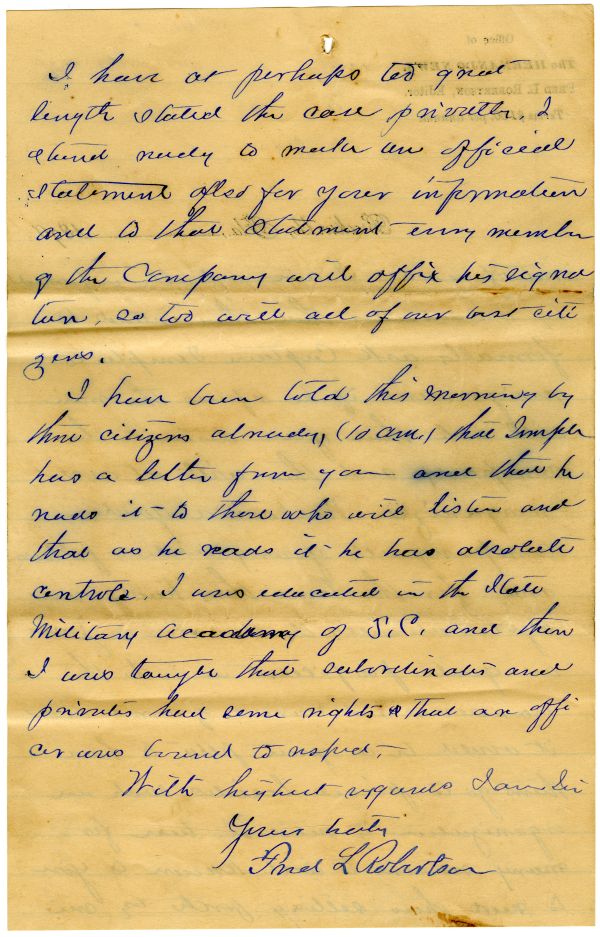 I have at perhaps too great
length stated the case privately, I
stand ready to make an official
statement also for your information
and to that statement every member
of the Company will affix his signa
ture, so too will all of our best citi
zens.
I have been told this morning by
three citizens already, (10 am,) that
has a letter from you and that he
reads it to those who will listen and
that as he reads it he has absolute
controle. I was educated in the State
Military Academy of S.C. and there
I was taught that subordinates and
privates had some rights & that an offi
cer was bound to respect.—
With highest regards I am Sir
Yours truly
Fred L Robertson
Office of
The HERNANDO NEWS,
FRED L. ROBERTSON, Editor.